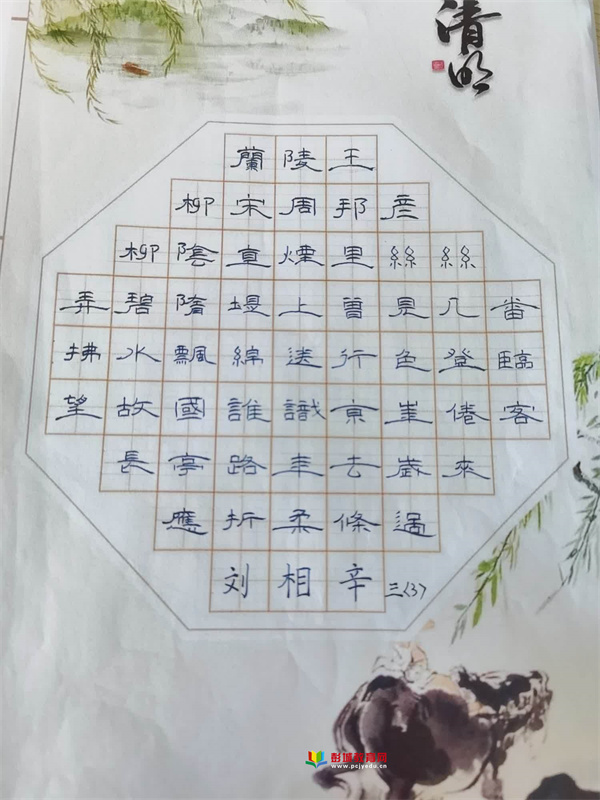 清明
蘭陵王
柳宋周邦彦
柳陰直煙里絲絲
弄碧隋堤上曾見几番
拂水飄綿送行色登臨
望故國誰識京華倦客
長亭路年去歲來
應折柔條過
刘相辛 三(3)
彭城教育网
www.pcjyedu.cn